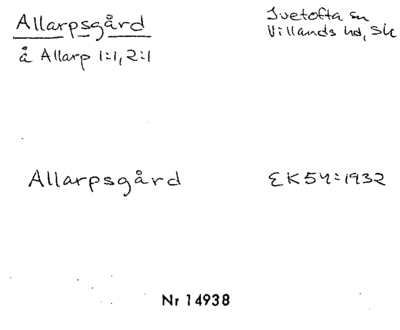 Allarpsgård
Ivetofta sn
å Allarp 1:1, 2:1
Villands hd, Sk
Allarpsgård
EK54:1932
Nr 14938